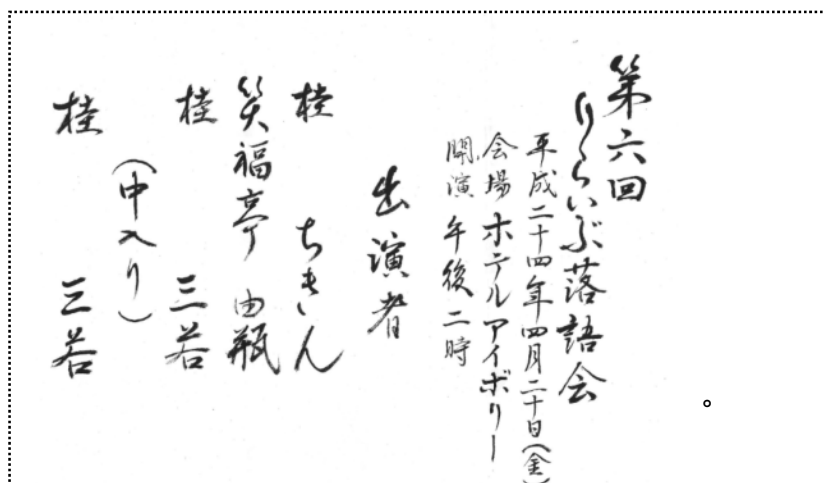 第六回
りらいぶ落語会
平成二十四年四月二十日(金)
会場 ホテルアイボリー
開演 午後二時
出演者
桂 ちきん
笑福亭 由瓶
桂 三若
(中入り)
桂 三若
。